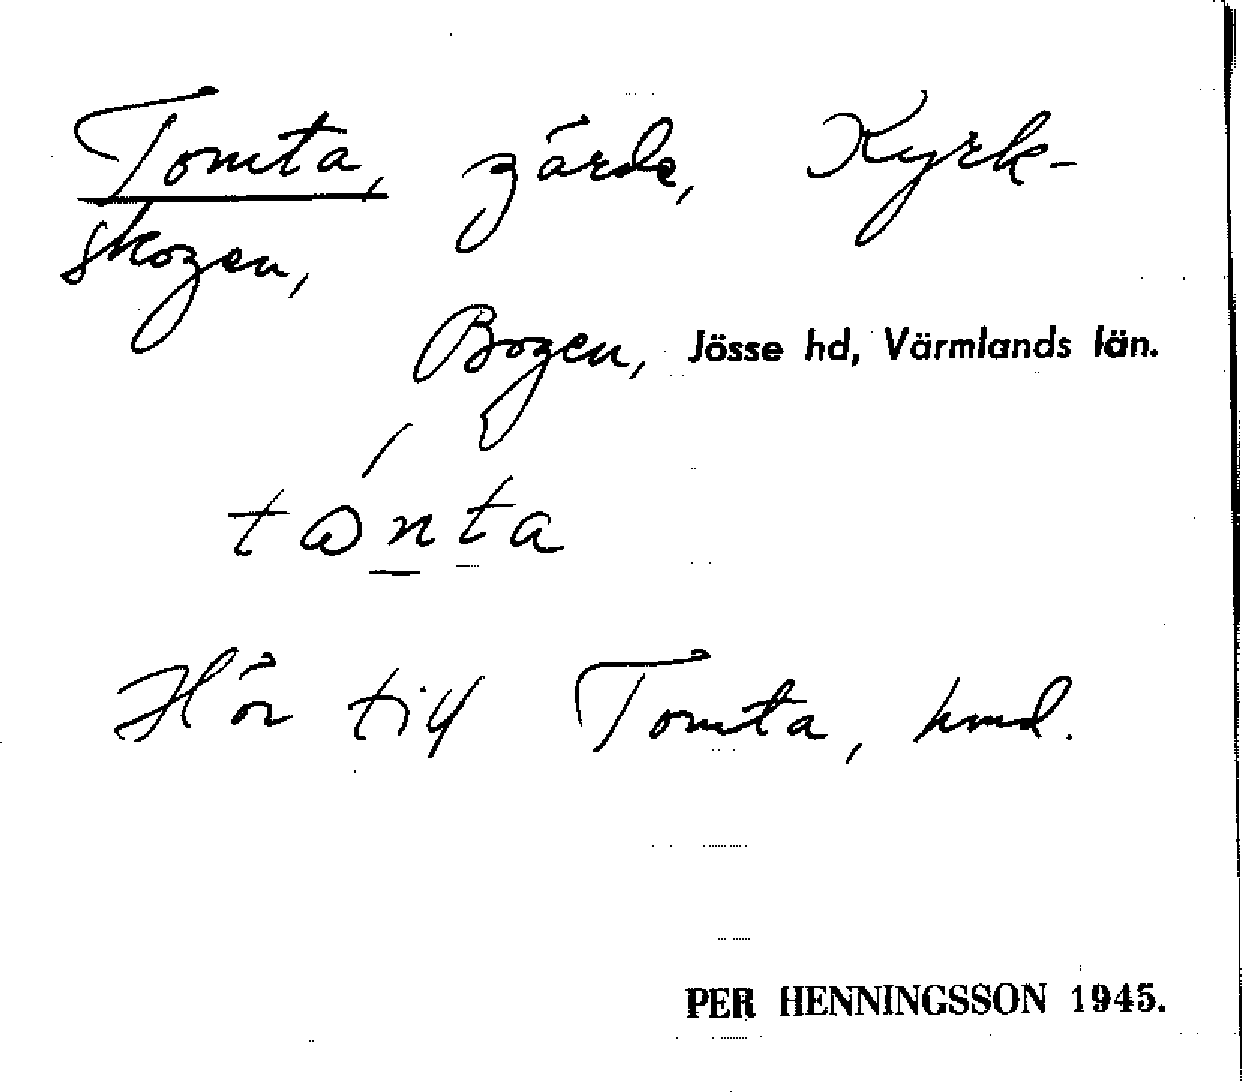 Tomta, gärde, Kyrk-
skogen,
Bogen, Jösse hd, Värmlands län.
tonta
Hör till Tomta, hmd.
PER HENNINGSSON 1945.